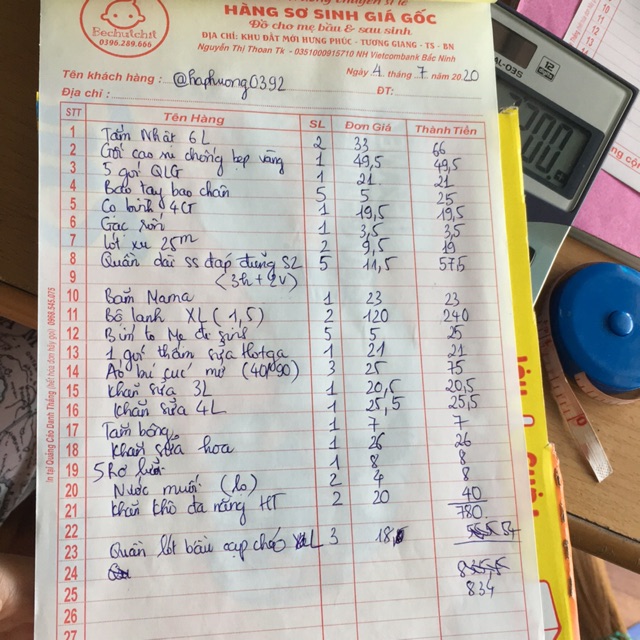 chuyên sỉ lẻ
HÀNG SƠ SINH GIÁ GỐC
Đồ cho mẹ bầu & sau sinh
Bechutchit
0396.289.666
ĐỊA CHỈ: KHU ĐẤT MỚI HƯNG PHÚC - TƯƠNG GIANG - TS - BN
Nguyễn Thị Thoan Tk - 0351000915710 NH Vietcombank Bắc Ninh
Ngày 4 tháng 7 năm 2020
Tên khách hàng: @haphuong0392
Địa chỉ: ĐT:
STT Tên Hàng SL Đơn Giá Thành Tiền
1 Tấm Nhật 6L 2 33 66
2 Gối cao su chống bẹp vàng 1 49,5 49,5
3 5 gói QLG 1 21 21
4 Bao tay bao chân 5 5 25
5 Cọ bình 4CT 1 19,5 19,5
6 Gạc rốn 1 3,5 3,5
7 lót xu 25m 2 9,5 19
8 Quần dài ss đạp đứng S2 5 11,5 57,5
9 (3h + 2v)
10 Bấm Mama 1 23 23
11 Bộ lanh XL (1,5) 2 120 240
12 Bỉm to Mẹ đi sinh 5 5 25
13 1 gói thấm sữa 1 21 21
14 Áo bú cúc mở (40, 90) 3 25 75
15 khăn sữa 3L 1 20,5 20,5
16 khăn sữa 4L 1 25,5 25,5
17 Tăm bông 1 7 7
18 khăn sữa hoa 1 26 26
19 5 Rơ lưỡi 1 8 8
20 Nước muối (lọ) 2 4 8
21 khăn khô đa năng HT 2 20 40
780
22
23 Quần lót bầu cạp chéo XL 3 18 54
24
25 834
26
27
In tại Quảng Cáo Danh Thắng (hết hóa đơn hãy gọi) 0998.545.073
AL-03S
12